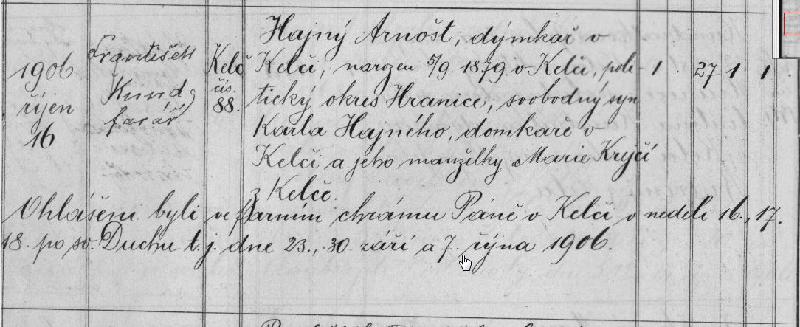 Hajný Arnošt, dýmkař v
1906 František Kelč Kelči, narozen 5/9 1879 v Kelči, poli- 1 27 1 1
říjen Kunda čís. tický okres Hranice, svobodný syn
16 farář 88. Karla Hajného, domkaře v
Kelči a jeho manželky Marie Krejčí
z Kelče.
Ohlášeni byli ve farním chrámu Páně v Kelči v neděli 16., 17.
18. po sv. Duchu t. j. dne 23., 30. září a 7. října 1906.